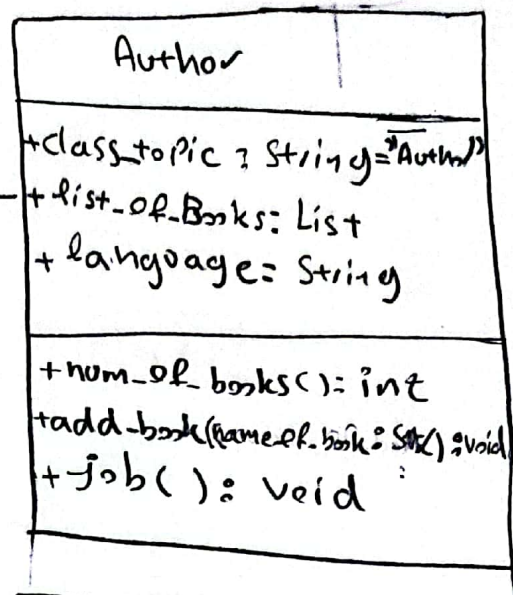 Author
+class_topic : String="Author"
+ list_of_Books: List
+ language: String
+num_of_books(): int
+add_book(name_of_book: Str): void
+job(): void